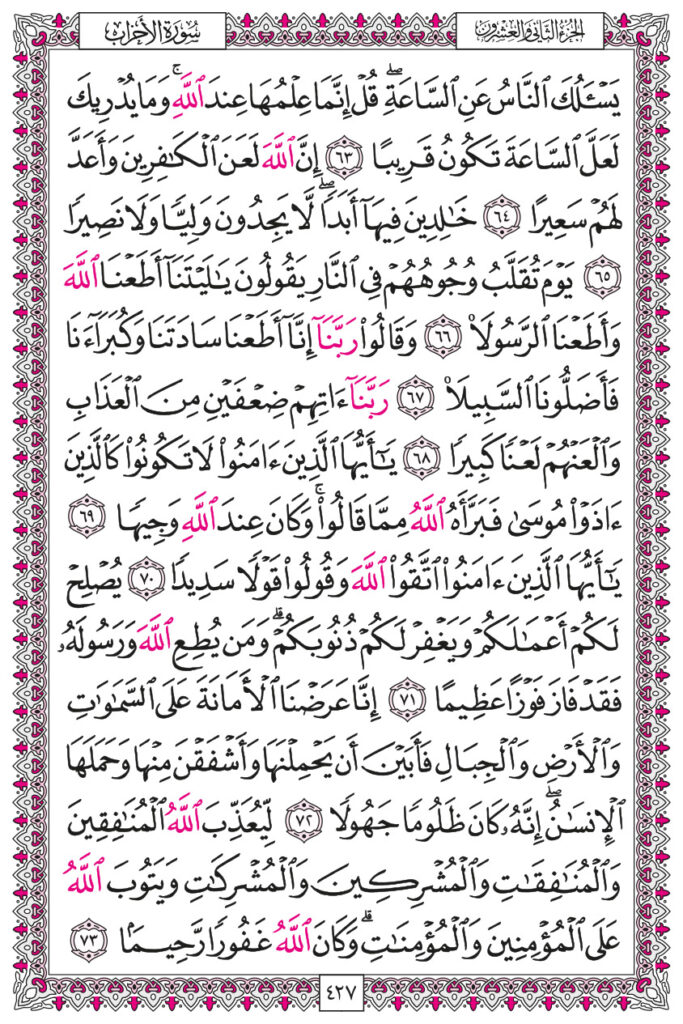 الجزء الثاني والعشرون
سورة الأحزاب
يَسْـَٔلُكَ ٱلنَّاسُ عَنِ ٱلسَّاعَةِۖ قُلْ إِنَّمَا عِلْمُهَا عِندَ ٱللَّهِۚ وَمَا يُدْرِيكَ
لَعَلَّ ٱلسَّاعَةَ تَكُونُ قَرِيبًا ٦٣ إِنَّ ٱللَّهَ لَعَنَ ٱلْكَٰفِرِينَ وَأَعَدَّ
لَهُمْ سَعِيرًا ٦٤ خَٰلِدِينَ فِيهَآ أَبَدًاۖ لَّا يَجِدُونَ وَلِيًّا وَلَا نَصِيرًا
٦٥ يَوْمَ تُقَلَّبُ وُجُوهُهُمْ فِى ٱلنَّارِ يَقُولُونَ يَٰلَيْتَنَآ أَطَعْنَا ٱللَّهَ
وَأَطَعْنَا ٱلرَّسُولَا۠ ٦٦ وَقَالُوا۟ رَبَّنَآ إِنَّآ أَطَعْنَا سَادَتَنَا وَكُبَرَآءَنَا
فَأَضَلُّونَا ٱلسَّبِيلَا۠ ٦٧ رَبَّنَآ ءَاتِهِمْ ضِعْفَيْنِ مِنَ ٱلْعَذَابِ
وَٱلْعَنْهُمْ لَعْنًا كَبِيرًا ٦٨ يَٰٓأَيُّهَا ٱلَّذِينَ ءَامَنُوا۟ لَا تَكُونُوا۟ كَٱلَّذِينَ
ءَاذَوْا۟ مُوسَىٰ فَبَرَّأَهُ ٱللَّهُ مِمَّا قَالُوا۟ۚ وَكَانَ عِندَ ٱللَّهِ وَجِيهًا ٦٩
يَٰٓأَيُّهَا ٱلَّذِينَ ءَامَنُوا۟ ٱتَّقُوا۟ ٱللَّهَ وَقُولُوا۟ قَوْلًا سَدِيدًا ٧٠ يُصْلِحْ
لَكُمْ أَعْمَٰلَكُمْ وَيَغْفِرْ لَكُمْ ذُنُوبَكُمْۗ وَمَن يُطِعِ ٱللَّهَ وَرَسُولَهُۥ
فَقَدْ فَازَ فَوْزًا عَظِيمًا ٧١ إِنَّا عَرَضْنَا ٱلْأَمَانَةَ عَلَى ٱلسَّمَٰوَٰتِ
وَٱلْأَرْضِ وَٱلْجِبَالِ فَأَبَيْنَ أَن يَحْمِلْنَهَا وَأَشْفَقْنَ مِنْهَا وَحَمَلَهَا
ٱلْإِنسَٰنُۖ إِنَّهُۥ كَانَ ظَلُومًا جَهُولًا ٧٢ لِّيُعَذِّبَ ٱللَّهُ ٱلْمُنَٰفِقِينَ
وَٱلْمُنَٰفِقَٰتِ وَٱلْمُشْرِكِينَ وَٱلْمُشْرِكَٰتِ وَيَتُوبَ ٱللَّهُ
عَلَى ٱلْمُؤْمِنِينَ وَٱلْمُؤْمِنَٰتِۗ وَكَانَ ٱللَّهُ غَفُورًا رَّحِيمًۢا ٧٣
٤٢٧